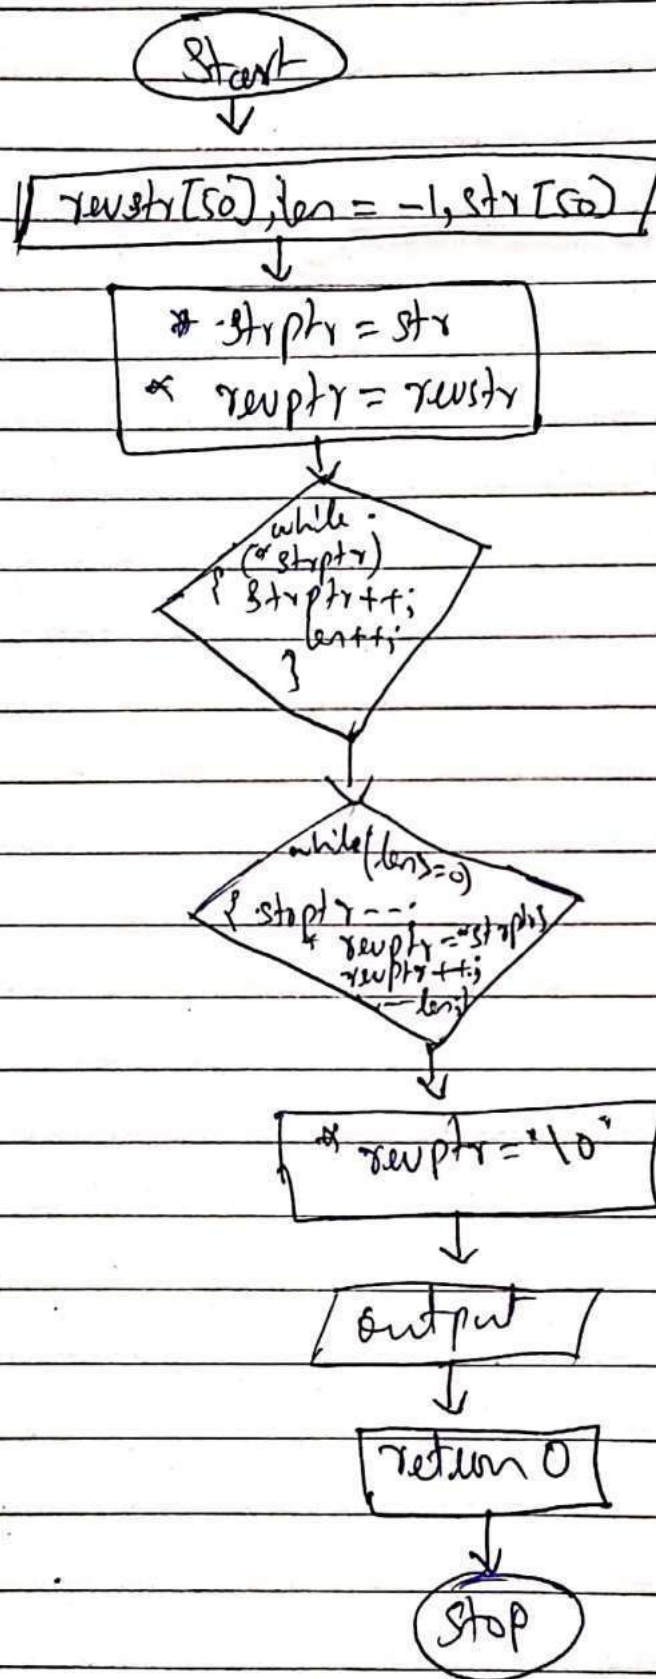 Start
revstr[50], len = -1, str[50]
* strptr = str
* revptr = revstr
while
{ (*strptr)
strptr++;
len++;
}
while(len>=0)
{ strptr--;
* revptr = *strptr;
revptr++;
--len;}
* revptr = '\0'
output
return 0
Stop